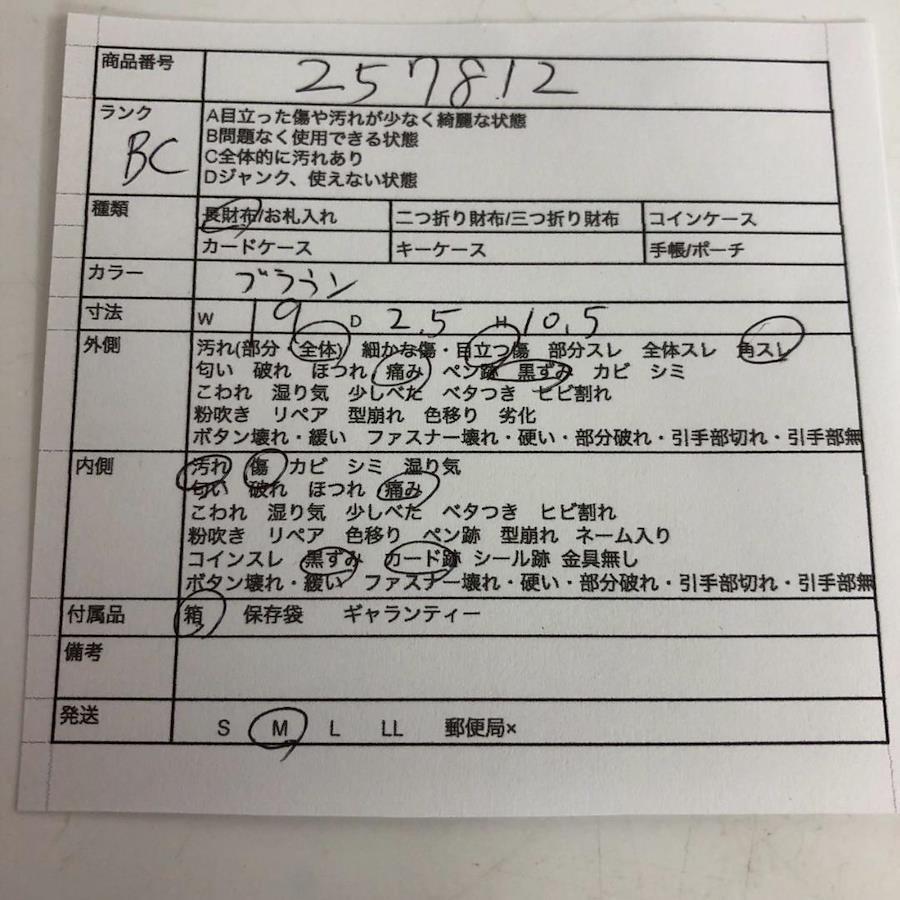 商品番号 257812
ランク BC
A目立った傷や汚れが少なく綺麗な状態
B問題なく使用できる状態
C全体的に汚れあり
Dジャンク、使えない状態
種類 長財布/お札入れ 二つ折り財布/三つ折り財布 コインケース
カードケース キーケース 手帳/ポーチ
カラー ブラウン
寸法 W 19 D 2.5 H 10.5
外側 汚れ(部分・全体) 細かな傷・目立つ傷 部分スレ 全体スレ 角スレ
匂い 破れ ほつれ 痛み ペン跡 黒ずみ カビ シミ
こわれ 湿り気 少しべた ベタつき ヒビ割れ
粉吹き リペア 型崩れ 色移り 劣化
ボタン壊れ・緩い ファスナー壊れ・硬い・部分破れ・引手部切れ・引手部無
内側 汚れ 傷 カビ シミ 湿り気
匂い 破れ ほつれ 痛み
こわれ 湿り気 少しべた ベタつき ヒビ割れ
粉吹き リペア 色移り ペン跡 型崩れ ネーム入り
コインスレ 黒ずみ カード跡 シール跡 金具無し
ボタン壊れ・緩い ファスナー壊れ・硬い・部分破れ・引手部切れ・引手部無
付属品 箱 保存袋 ギャランティー
備考
発送 S M L LL 郵便局×